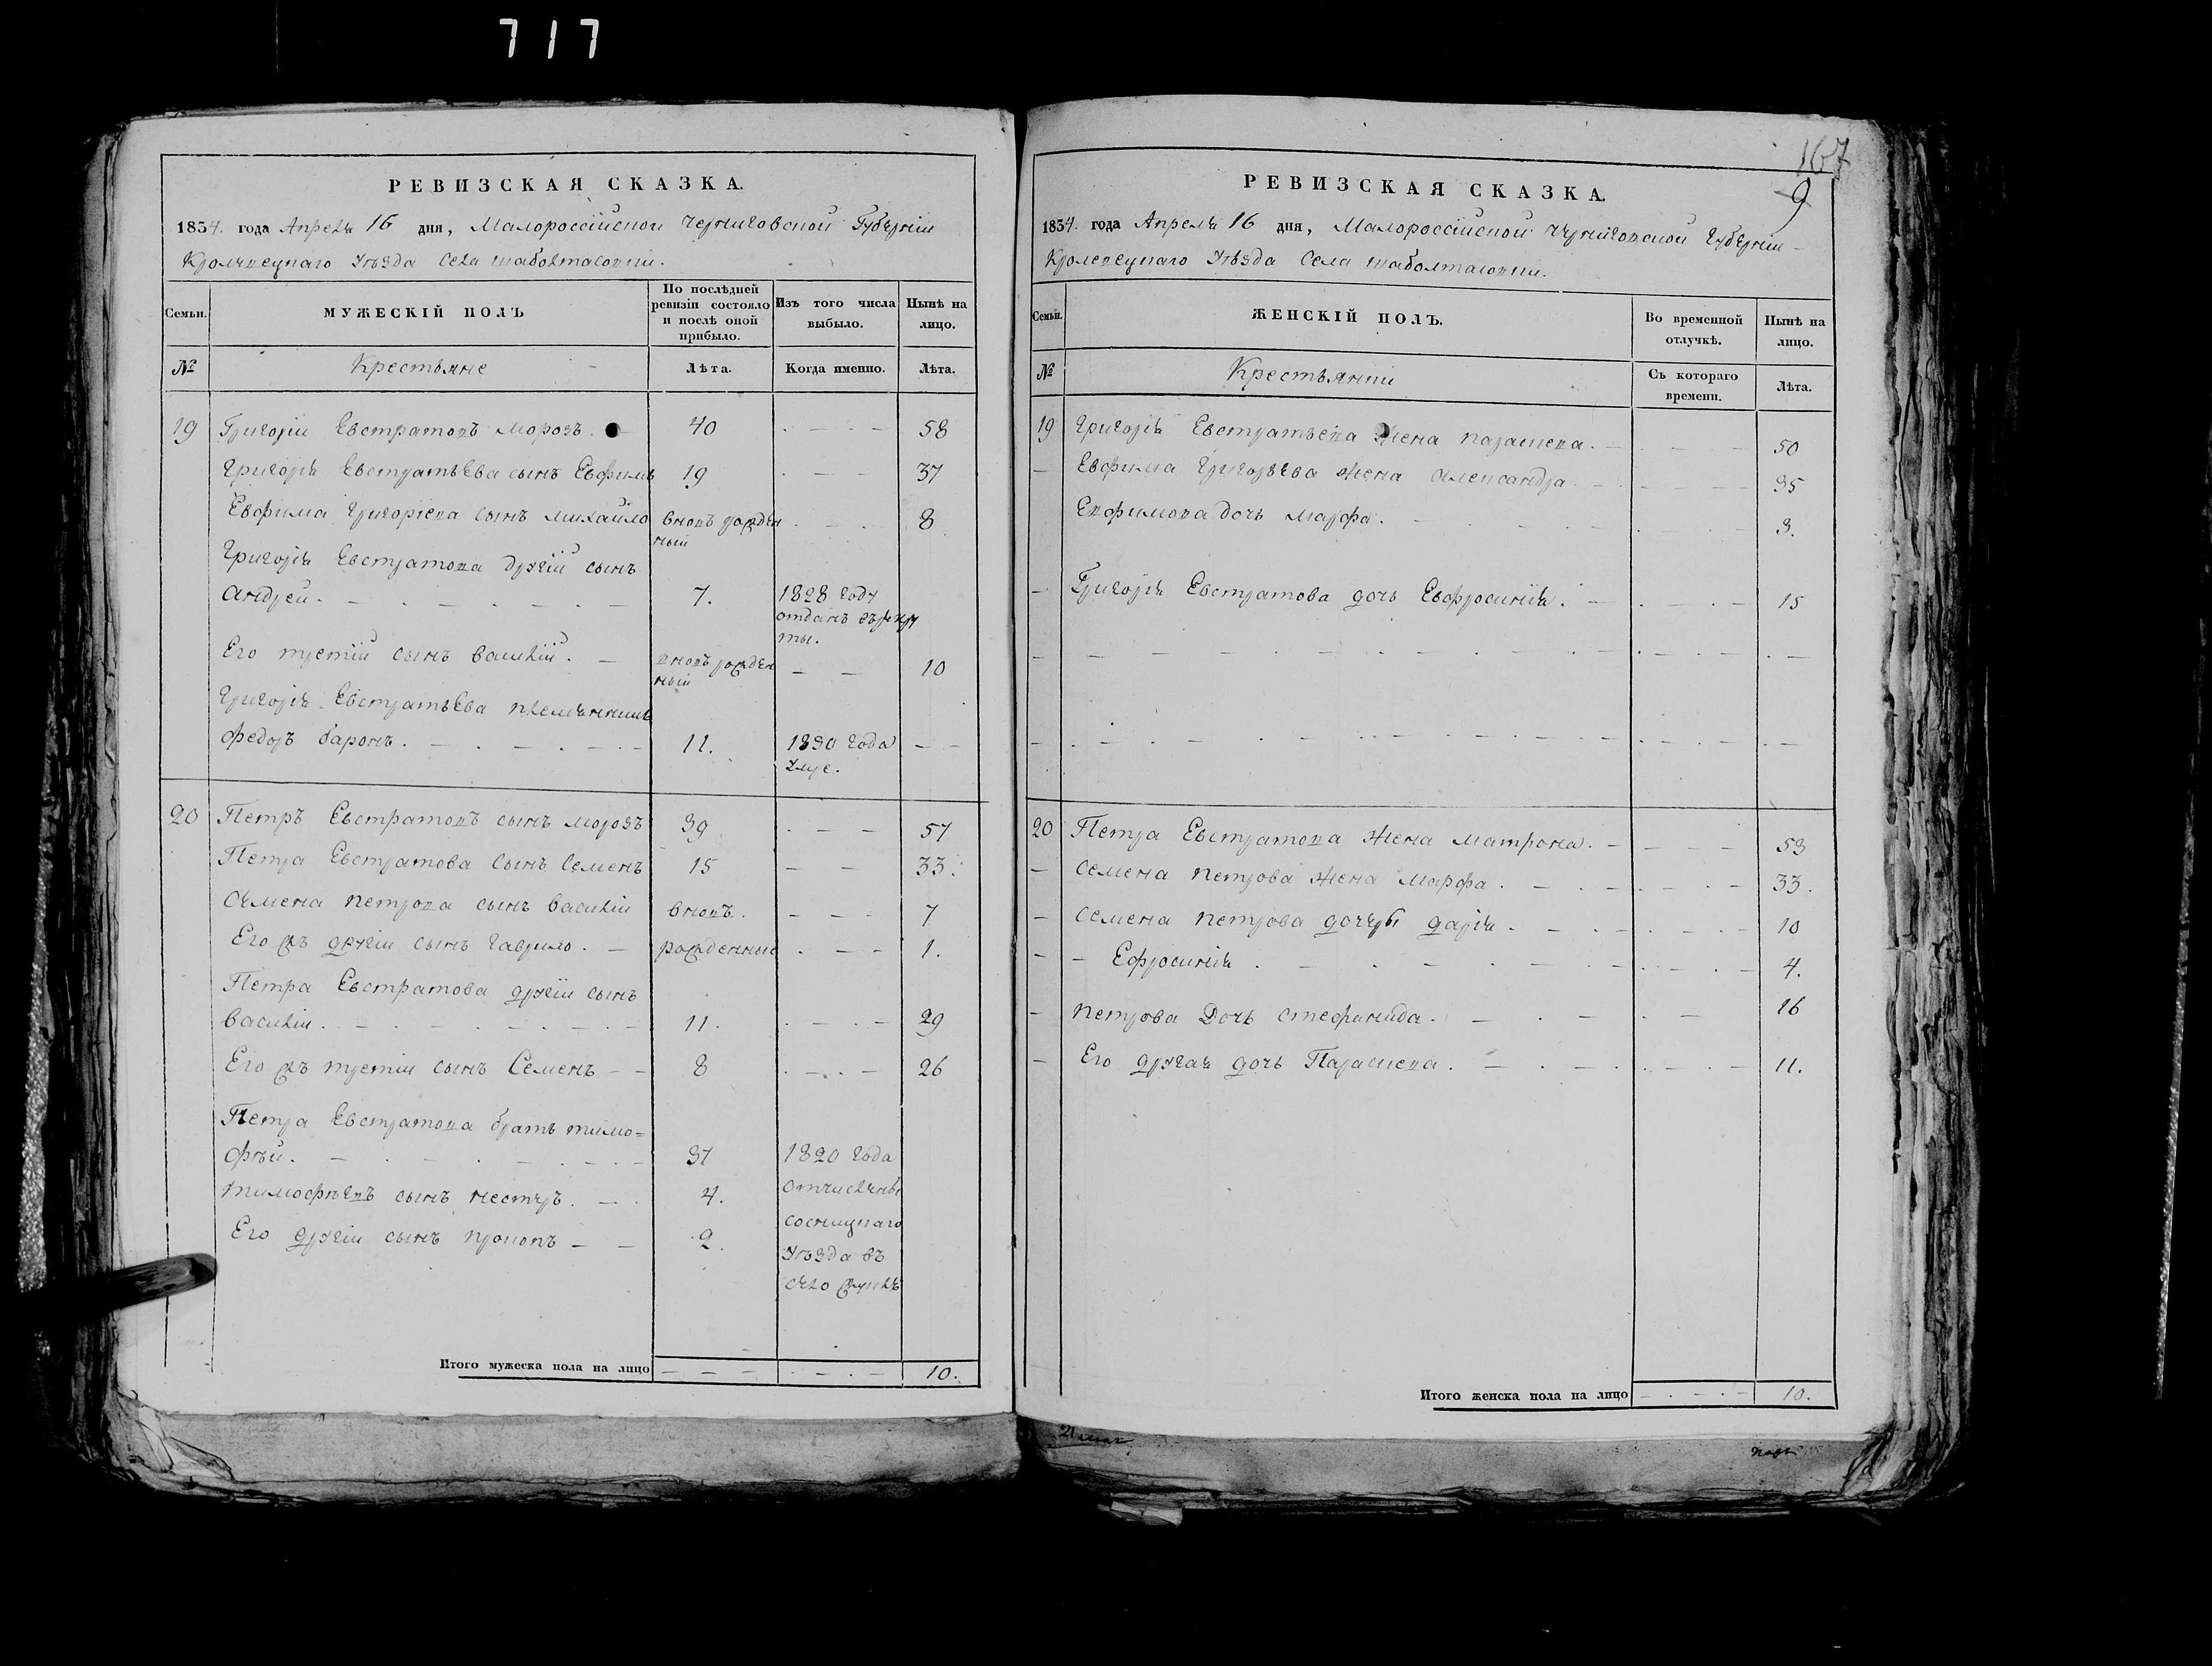 717
РЕВИЗСКАЯ СКАЗКА.
1834. года Апреля 16 дня, Малороссійской Черниговской Губерніи
Кролевецкаго Уѣзда Села Шаболтасовки.
Семьи.
МУЖЕСКІЙ ПОЛЪ
По послѣдней ревизіи состояло и послѣ оной прибыло.
Изъ того числа выбыло.
Нынѣ на лицо.
№
Крестьяне
Лѣта.
Когда именно.
Лѣта.
19 Григорій Евстратовъ Морозъ. 40 58
Григорія Евстратьева сынъ Евфимъ 19 37
Евфима Григоріева сынъ Михайло вновь рожден 8
ный
Григорія Евстратова другій сынъ
Андрей. 7. 1828 году
отданъ въ рекру
ты.
Его третій сынъ Василій. вновь рожден 10
ный
Григорія Евстратьева племянникъ
Федоръ Баронъ. 11. 1830 года
умре.
20 Петръ Евстратовъ сынъ Морозъ 39 57
Петра Евстратова сынъ Семенъ 15 33.
Семена Петрова сынъ Василій вновь. 7
Его жъ другій сынъ Гаврило. рожденные 1.
Петра Евстратова другій сынъ
Василій. 11. 29
Его жъ третій сынъ Семенъ 8 26
Петра Евстратова братъ Тимо=
фѣй. 37 1820 года
Тимофѣевъ сынъ Нестеръ. 4. отчислены
Сосницкаго
Его другій сынъ Прокопъ 2. Уѣзда въ
село
Итого мужеска пола на лицо 10.
167
9
РЕВИЗСКАЯ СКАЗКА.
1834. года Апреля 16 дня, Малороссійской Черниговской Губерніи
Кролевецкаго Уѣзда Села Шаболтасовки.
Семьи.
ЖЕНСКІЙ ПОЛЪ.
Во временной отлучкѣ.
Нынѣ на лицо.
№
Крестьянки
Съ котораго времени.
Лѣта.
19 Григорія Евстратьева жена Параскева. 50
Евфима Григорьева жена Александра 35
Евфимова дочь Марфа. 3.
Григорія Евстратова дочь Евфросинія. 15
20 Петра Евстратова жена Матрона. 53
Семена Петрова жена Марфа. 33.
Семена Петрова дочеры Дарія. 10
Ефросинія. 4.
Петрова дочь Стефанида. 16
Его другая дочь Параскева. 11.
Итого женска пола на лицо 10.